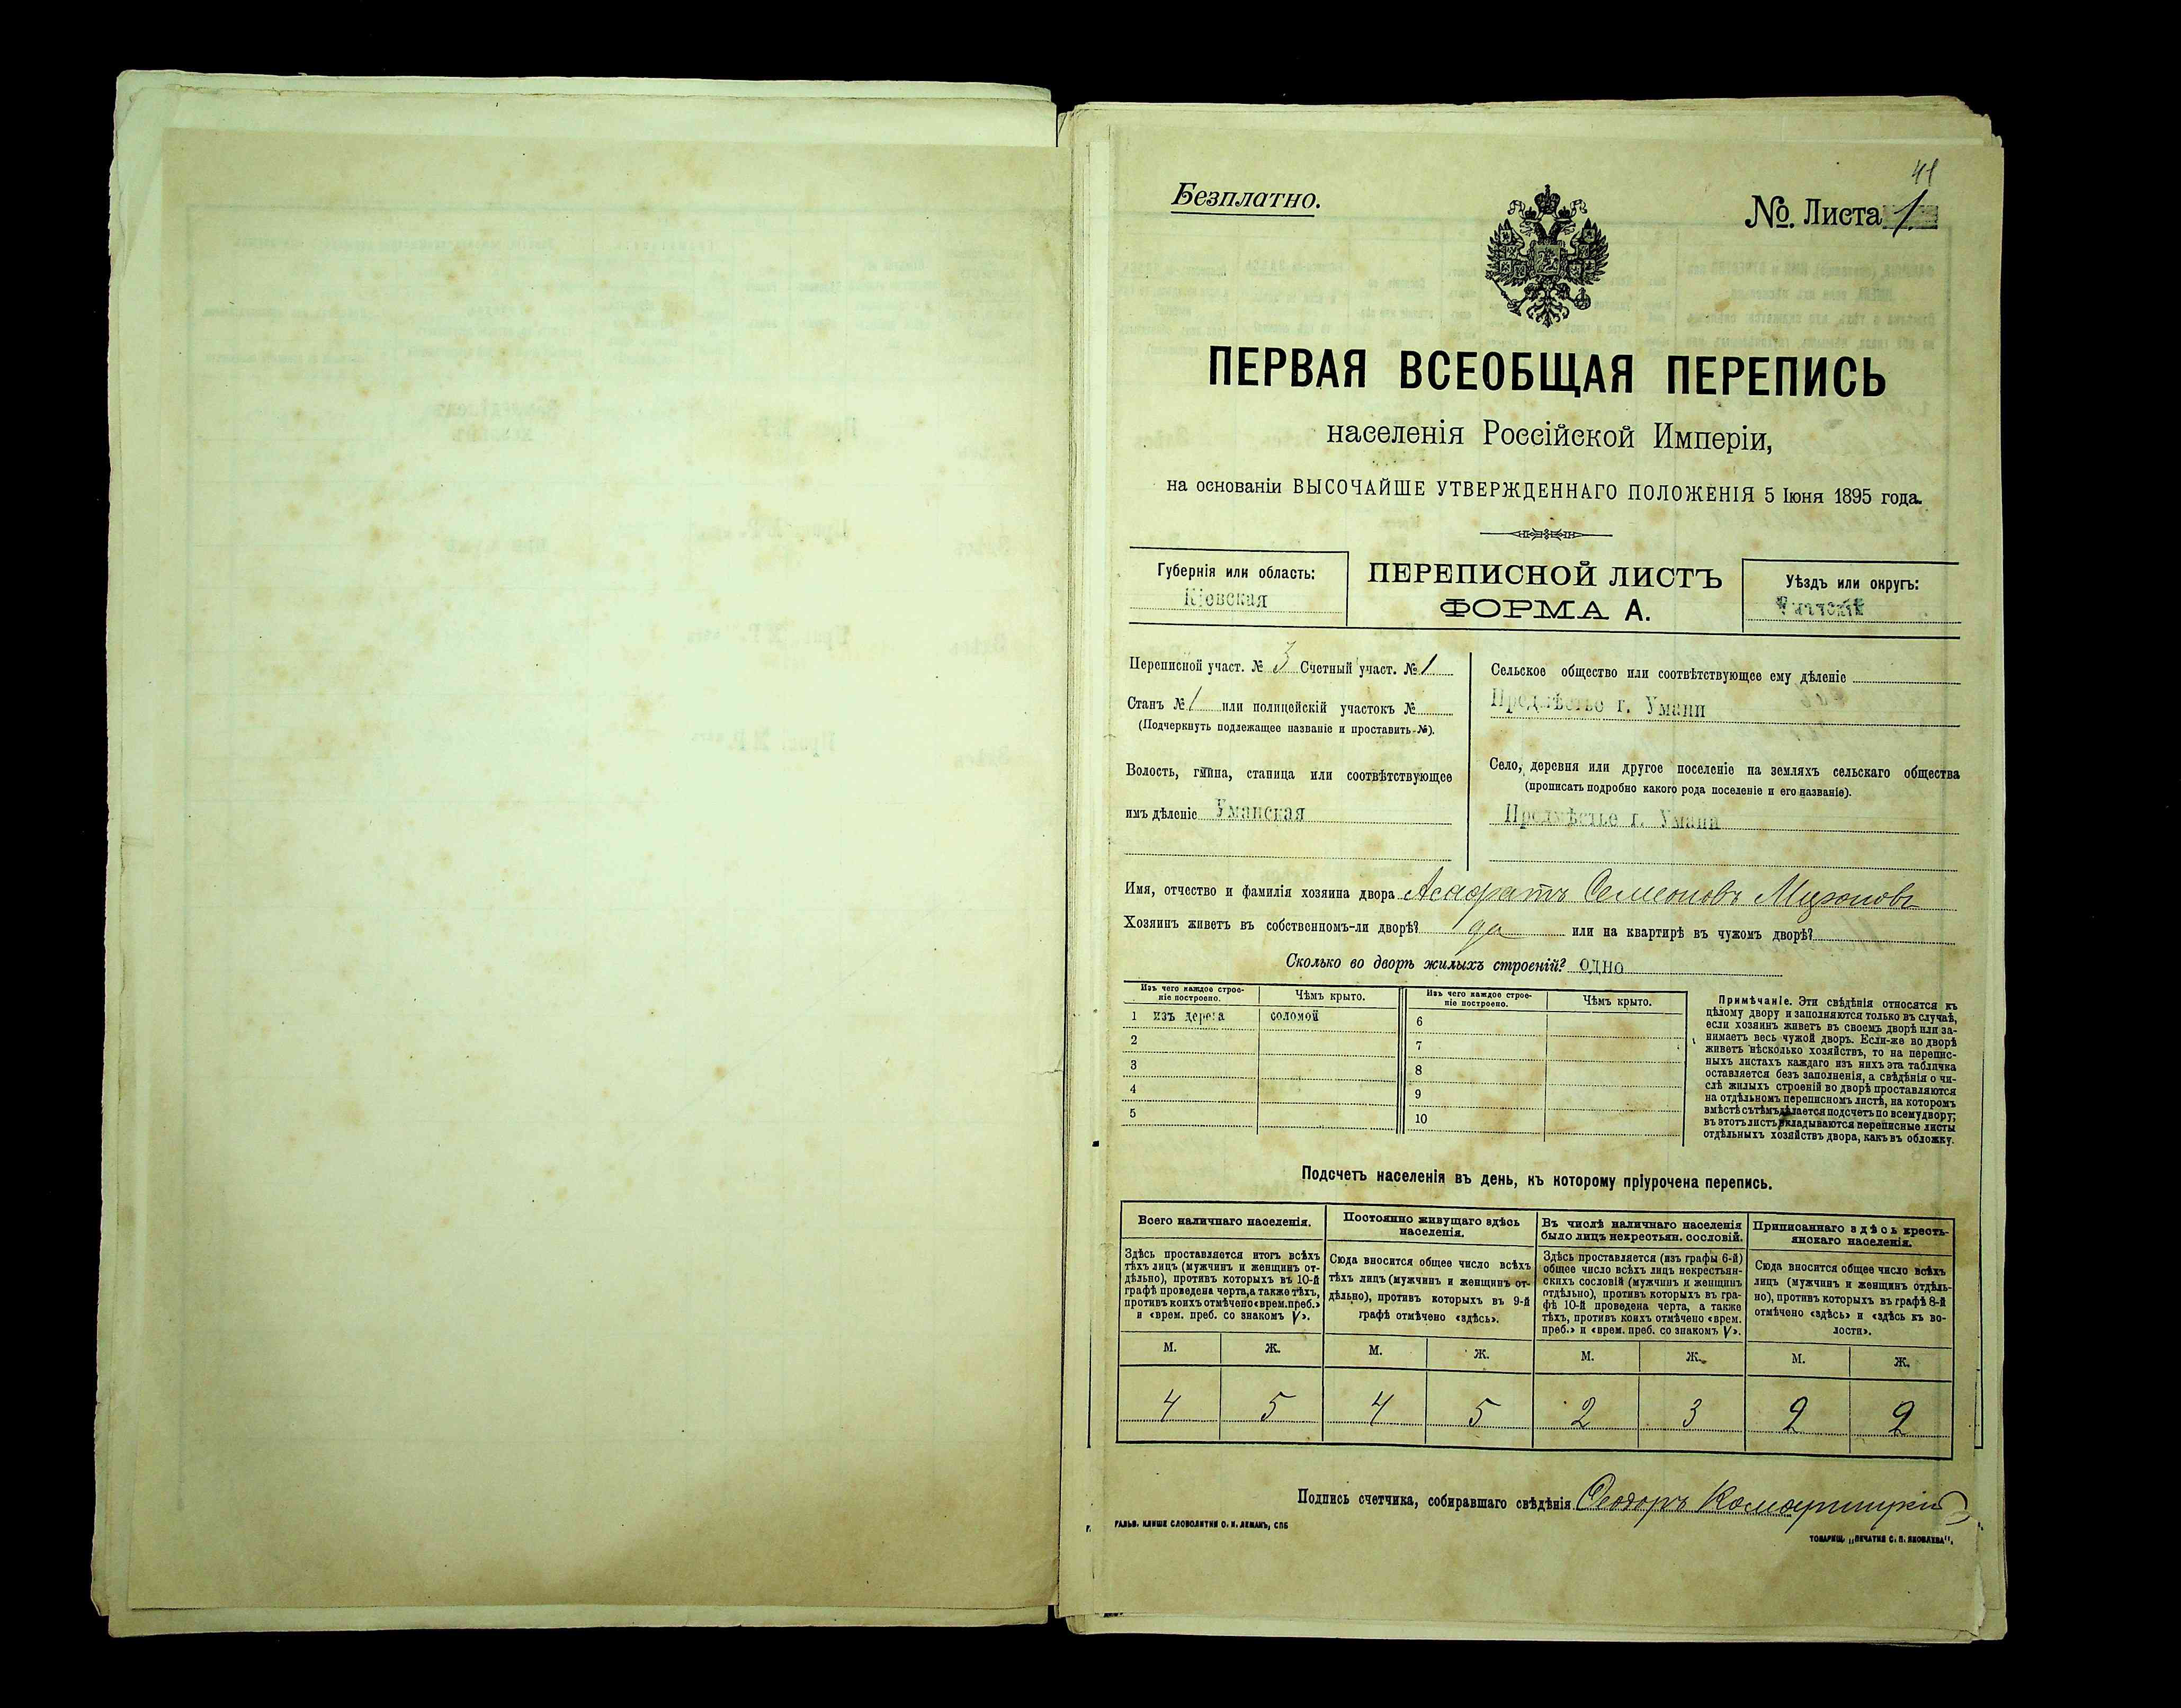 41
Безплатно.
№. Листа 1.
ПЕРВАЯ ВСЕОБЩАЯ ПЕРЕПИСЬ
населенія Россійской Имперіи,
на основаніи ВЫСОЧАЙШЕ УТВЕРЖДЕННАГО ПОЛОЖЕНІЯ 5 Іюня 1895 года.
Губернія или область:
Кіевская
ПЕРЕПИСНОЙ ЛИСТЪ
ФОРМА А.
Уѣздъ или округъ:
Переписной участ. № 3 Счетный участ. № 1
Станъ № 1 или полицейскій участокъ №
(Подчеркнуть подлежащее названіе и проставить №).
Волость, гмина, станица или соотвѣтствующее
имъ дѣленіе Уманская
Сельское общество или соотвѣтствующее ему дѣленіе
Предмѣстье г. Умани
Село, деревня или другое поселеніе на земляхъ сельскаго общества
(прописать подробно какого рода поселеніе и его названіе).
Предмѣстье г. Умани
Имя, отчество и фамилія хозяина двора Семеоновъ
Хозяинъ живетъ въ собственномъ-ли дворѣ? да или на квартирѣ въ чужомъ дворѣ?
Сколько во дворѣ жилыхъ строеній? одно
Изъ чего каждое строе-
ніе построено.
Чѣмъ крыто.
Изъ чего каждое строе-
ніе построено.
Чѣмъ крыто.
1 изъ дерева соломой
2
3
4
5
6
7
8
9
10
Примѣчаніе. Эти свѣдѣнія относятся къ
цѣлому двору и заполняются только въ случаѣ,
если хозяинъ живетъ въ своемъ дворѣ или за-
нимаетъ весь чужой дворъ. Если-же во дворѣ
живетъ нѣсколько хозяйствъ, то на перепис-
ныхъ листахъ каждаго изъ нихъ эта табличка
оставляется безъ заполненія, а свѣдѣнія о чи-
слѣ жилыхъ строеній во дворѣ проставляются
на отдѣльномъ переписномъ листѣ, на которомъ
вмѣстѣ съ тѣмъ дѣлается подсчетъ по всему двору;
въ этотъ листъ вкладываются переписные листы
отдѣльныхъ хозяйствъ двора, какъ въ обложку.
Подсчетъ населенія въ день, къ которому пріурочена перепись.
Всего наличнаго населенія.
Здѣсь проставляется итогъ всѣхъ
тѣхъ лицъ (мужчинъ и женщинъ от-
дѣльно), противъ которыхъ въ 10-й
графѣ проведена черта, а также тѣхъ,
противъ коихъ отмѣчено «врем. преб.»
и «врем. преб. со знакомъ V».
Постоянно живущаго здѣсь
населенія.
Сюда вносится общее число всѣхъ
тѣхъ лицъ (мужчинъ и женщинъ от-
дѣльно), противъ которыхъ въ 9-й
графѣ отмѣчено «здѣсь».
Въ числѣ наличнаго населенія
было лицъ некрестьян. сословій.
Здѣсь проставляется (изъ графы 6-й)
общее число всѣхъ лицъ некрестьян-
скихъ сословій (мужчинъ и женщинъ
отдѣльно), противъ которыхъ въ гра-
фѣ 10-й проведена черта, а также
тѣхъ, противъ коихъ отмѣчено «врем.
преб.» и «врем. преб. со знакомъ V».
Приписаннаго здѣсь кресть-
янскаго населенія.
Сюда вносится общее число всѣхъ
лицъ (мужчинъ и женщинъ отдѣль-
но), противъ которыхъ въ графѣ 8-й
отмѣчено «здѣсь» и «здѣсь къ во-
лости».
М. Ж. М. Ж. М. Ж. М. Ж.
4 5 4 5 2 3 2 2
Подпись счетчика, собиравшаго свѣдѣнія Ѳеодоръ
ГАЛЬВ. КЛИШЕ СЛОВОЛИТНИ О. И. ЛЕМАНЪ, СПБ
ТОВАРИЩ. „ПЕЧАТНЯ С. П. ЯКОВЛЕВА“.